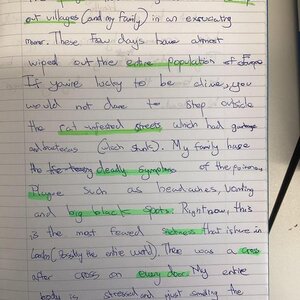 out villages (and my family) in an excruciating
manner. These few days have almost
wiped out the entire population of Europe
If you're lucky to be alive, you
would not dare to step outside
the rat-infested streets which had garbage
and buetocus (which stank). My family have
the deadly symptoms of the poisonous
Plague such as headaches, vomiting
and big black spots. Right now, this
is the most feared sickness that is here in
London (, possibly the entire world). There was a cross
after cross on every door. My entire
body is stressed and must sending the